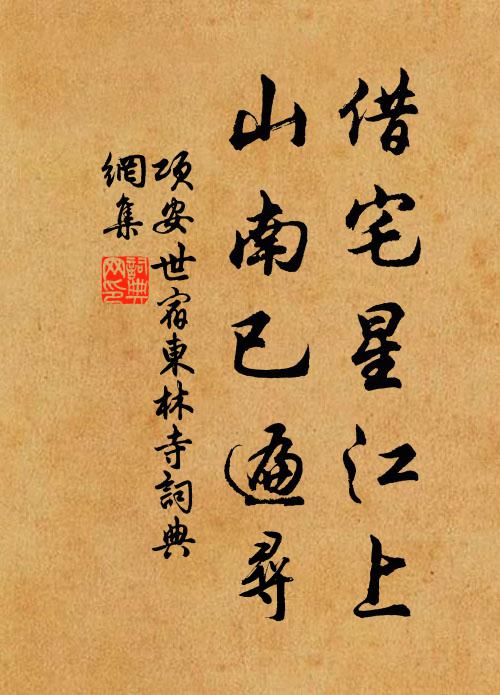 借宅星江上
山南已遍尋
項安世宿東林寺詞典
網集
詞典
网印